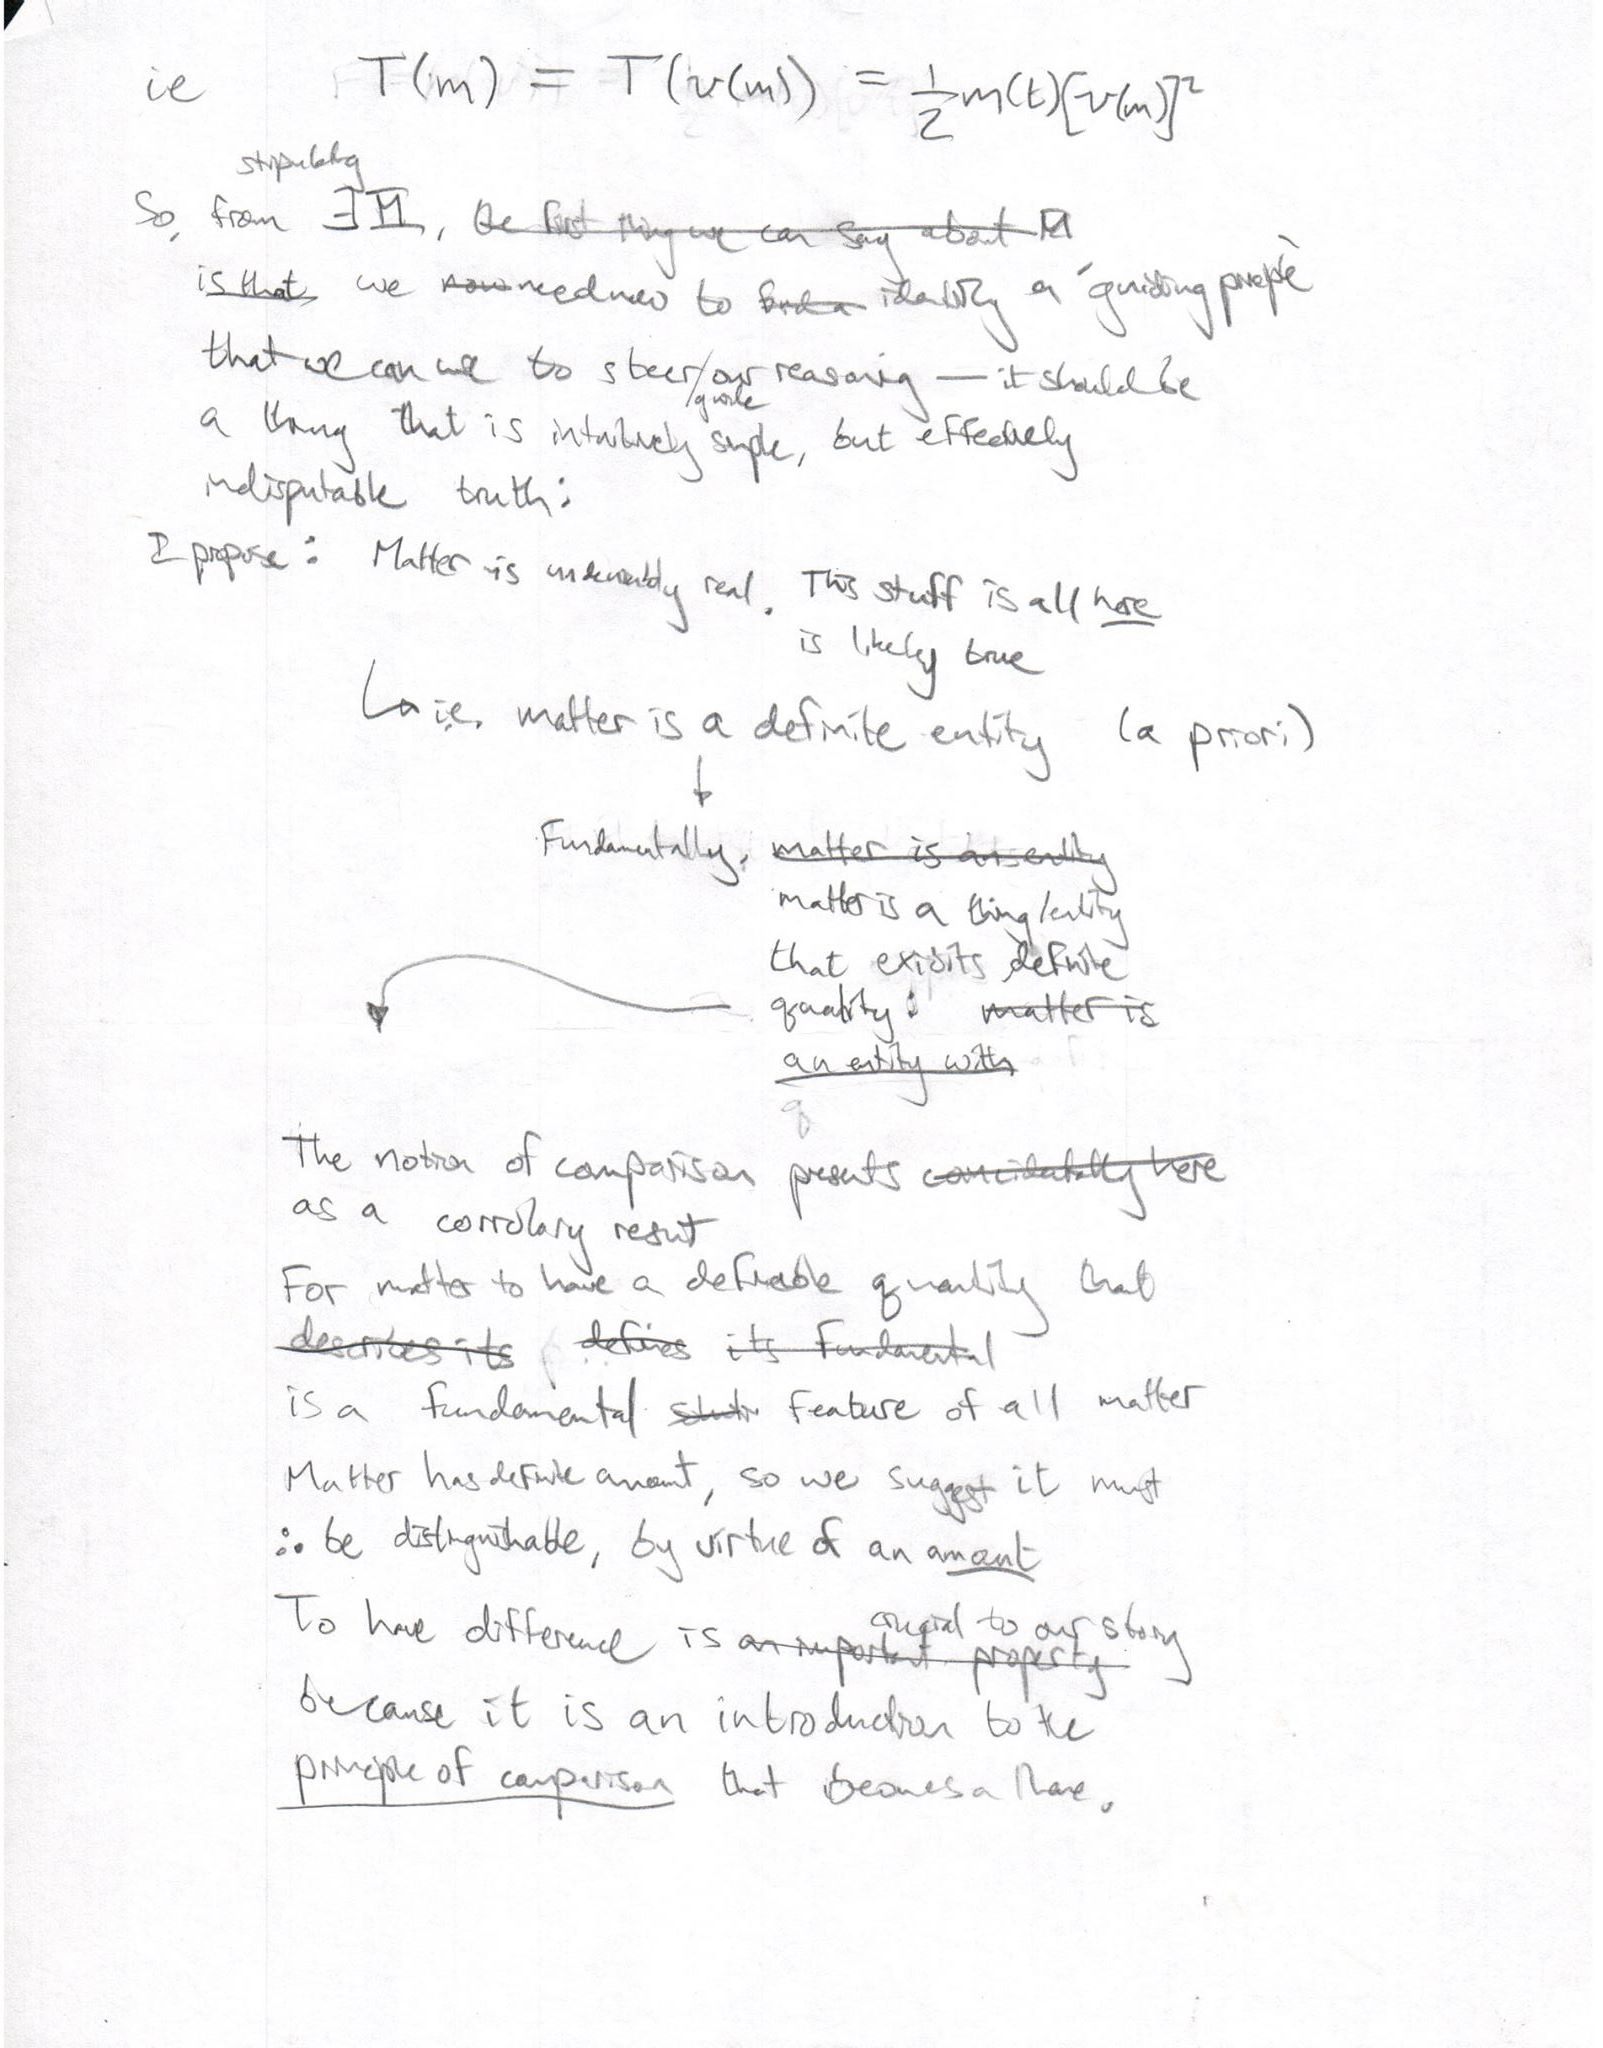 ie T(m) = T(v(m)) = 1/2 m(t)[v(m)]²
stipulating
So, from ∃M, the first thing we can say about M
is that, we now need now to find a identify a 'guiding principle'
that we can use to steer/our reasoning — it should be
guide
a thing that is intuitively simple, but effectively
indisputable truth:
I propose: Matter is undeniably real. This stuff is all here
is likely true
↳ i.e. matter is a definite entity (a priori)
↓
Fundamentally, matter is an entity
matter is a thing/entity
that exibits definite
quality: matter is
an entity with
q
The notion of comparison presents coincidentally here
as a corrolary result
For matter to have a definable quantity that
describes its defines its fundamental
is a fundamental feature of all matter
Matter has definite amount, so we suggest it must
∴ be distinguishable, by virtue of an amount
crucial to our story
To have difference is an important property
because it is an introduction to the
principle of comparison that becomes a theme.